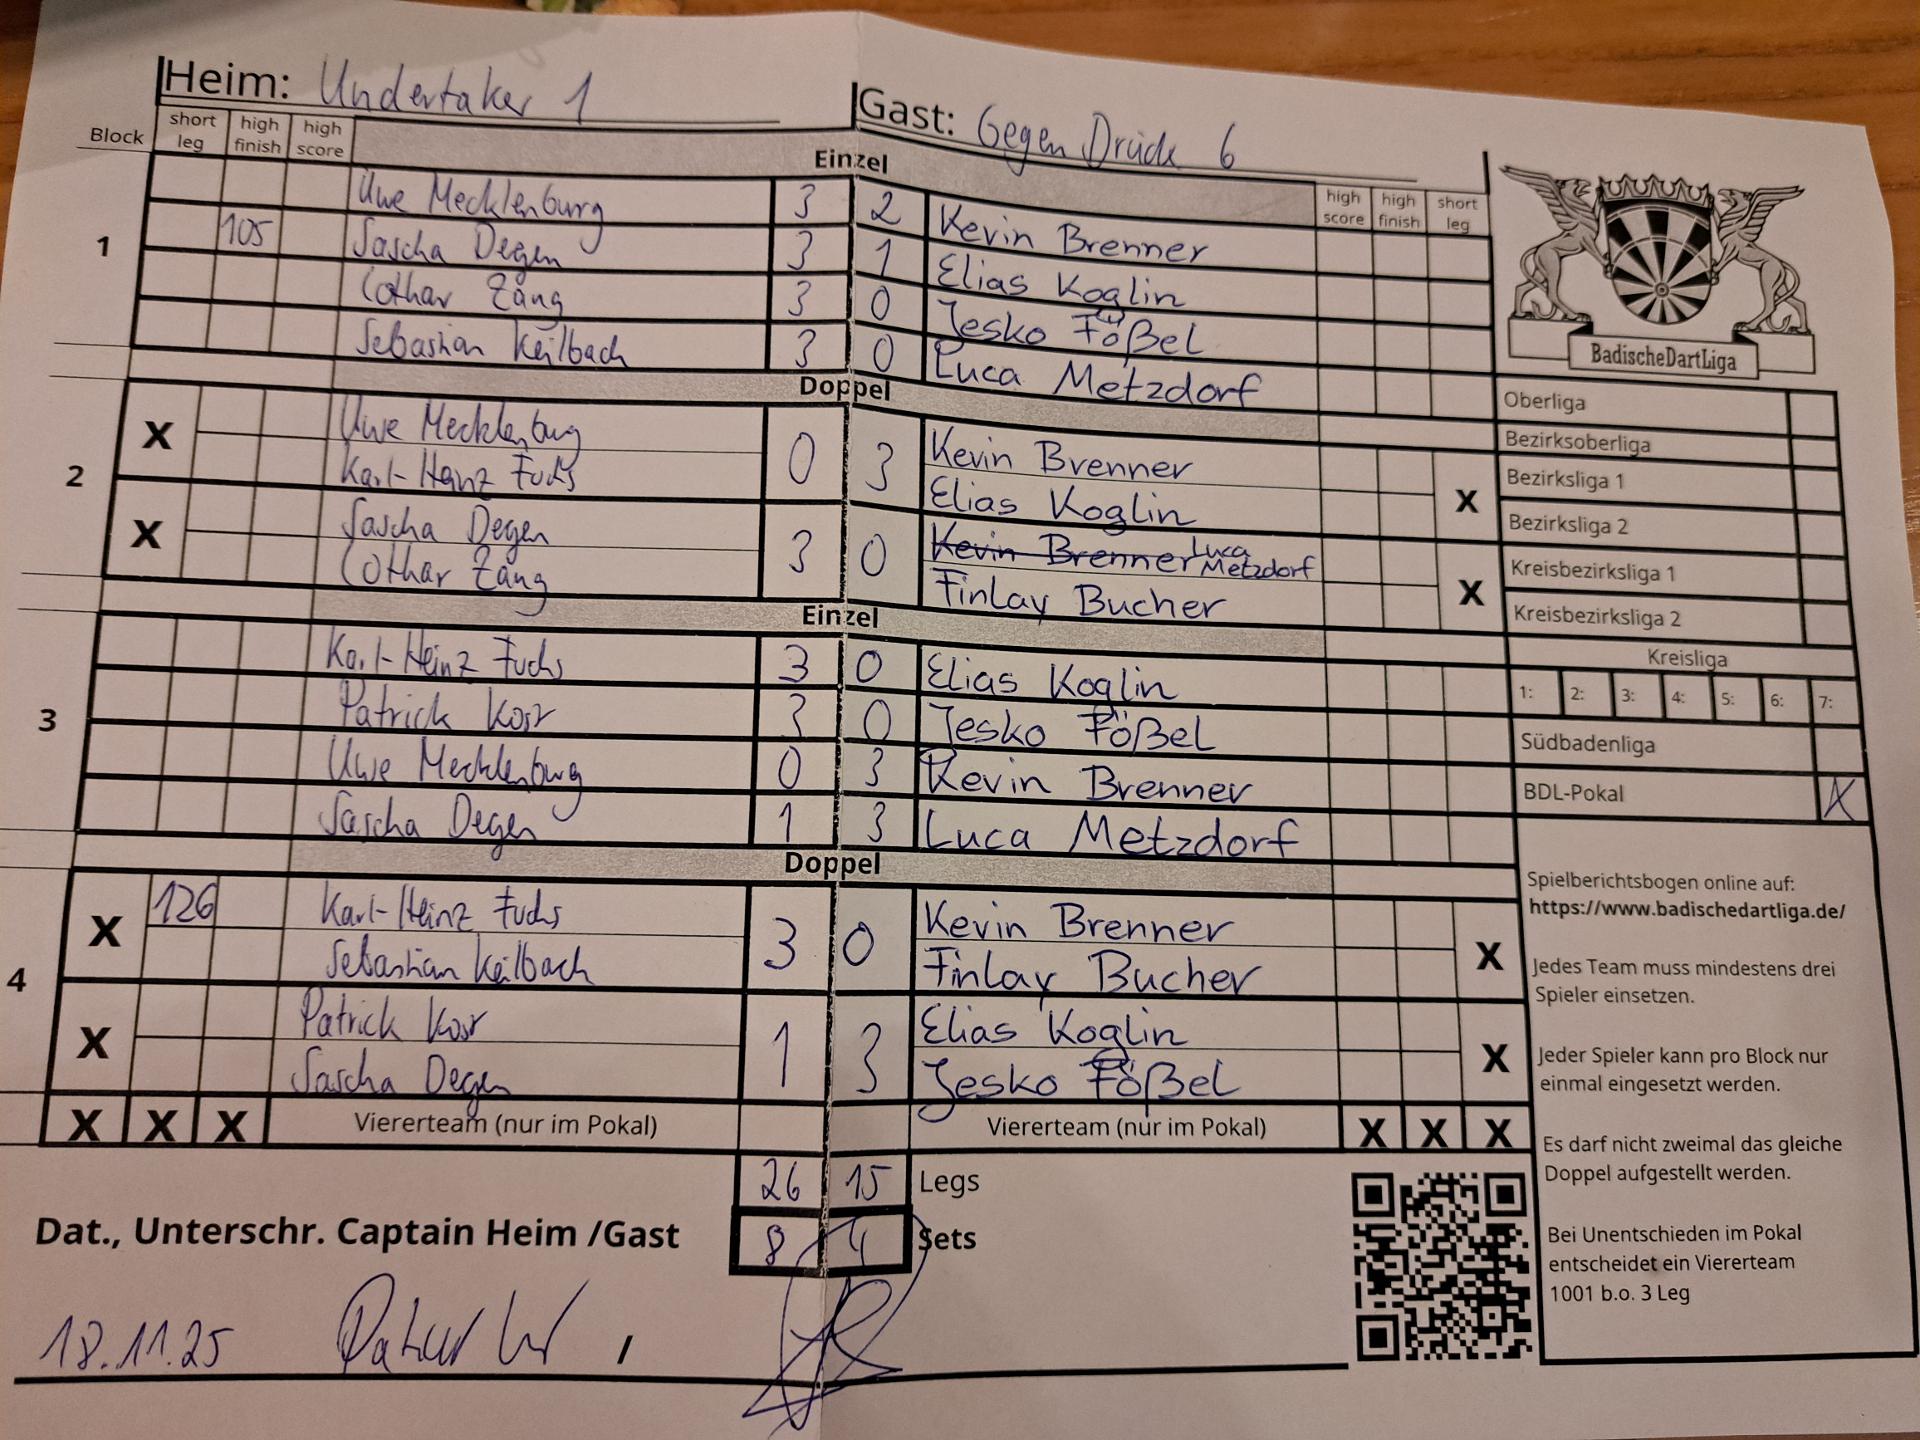 Heim: Undertaker 1
Gast: Gegen Druck 6
Block short leg high finish high score Einzel high score high finish short leg
1
Uwe Mecklenburg 3 2 Kevin Brenner
105 Sascha Degen 3 1 Elias Koglin
Lothar Zang 3 0 Jesko Fößel
Sebastian Keilbach 3 0 Luca Metzdorf
Doppel
2
X Uwe Mecklenburg 0 3 Kevin Brenner X
Karl-Heinz Fuchs Elias Koglin
X Sascha Degen 3 0 Kevin Brenner Luca Metzdorf X
Lothar Zang Finlay Bucher
Einzel
3
Karl-Heinz Fuchs 3 0 Elias Koglin
Patrick Kost 3 0 Jesko Fößel
Uwe Mecklenburg 0 3 Kevin Brenner
Sascha Degen 1 3 Luca Metzdorf
Doppel
4
X 126 Karl-Heinz Fuchs 3 0 Kevin Brenner X
Sebastian Keilbach Finlay Bucher
X Patrick Kost 1 3 Elias Koglin X
Sascha Degen Jesko Fößel
X X X Viererteam (nur im Pokal) Viererteam (nur im Pokal) X X X
26 15 Legs
8 4 Sets
Dat., Unterschr. Captain Heim /Gast
18.11.25 /
BadischeDartLiga
Oberliga
Bezirksoberliga
Bezirksliga 1
Bezirksliga 2
Kreisbezirksliga 1
Kreisbezirksliga 2
Kreisliga
1: 2: 3: 4: 5: 6: 7:
Südbadenliga
BDL-Pokal X
Spielberichtsbogen online auf:
https://www.badischedartliga.de/
Jedes Team muss mindestens drei
Spieler einsetzen.
Jeder Spieler kann pro Block nur
einmal eingesetzt werden.
Es darf nicht zweimal das gleiche
Doppel aufgestellt werden.
Bei Unentschieden im Pokal
entscheidet ein Viererteam
1001 b.o. 3 Leg